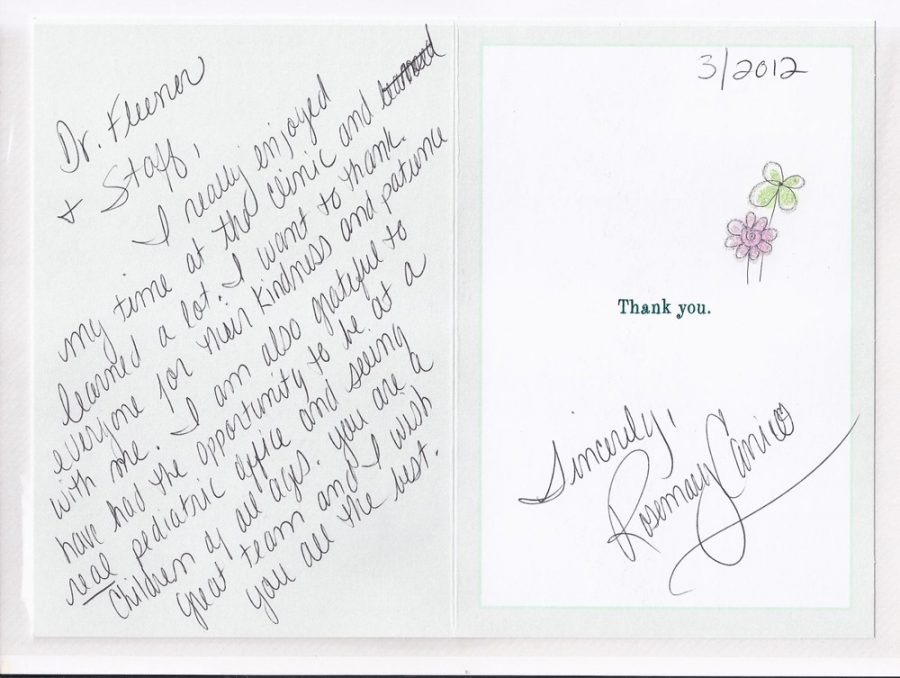 Dr. Fleener
& Staff,
I really enjoyed
my time at the clinic and
learned a lot. I want to thank
everyone for their kindness and patience
with me. I am also grateful to
have had the opportunity to be at a
real pediatric office and seeing
Children of all ages. You are a
great team and I wish
you all the best.
3/2012
Thank you.
Sincerely,
Rosemary